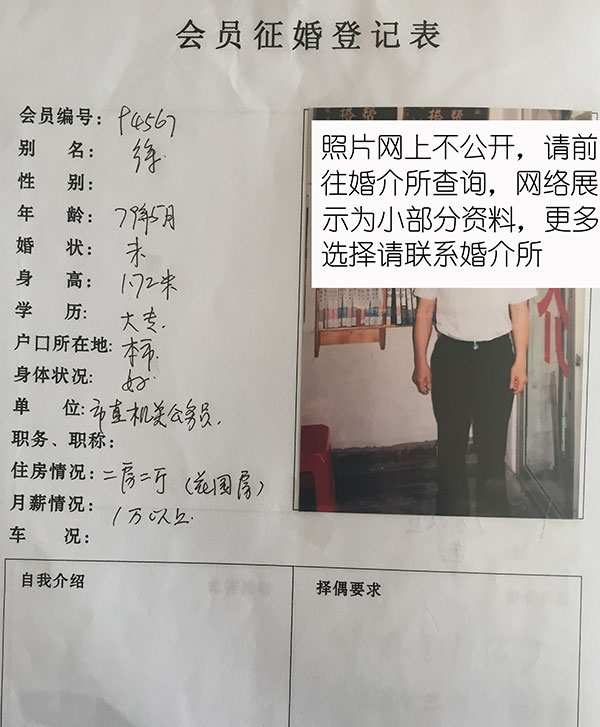 会员征婚登记表
会员编号：94567
别 名：徐
性 别：
年 龄：79年5月
婚 状：未
身 高：1.72米
学 历：大专
户口所在地：本市
身体状况：好
单 位：市直机关公务员
职务、职称：
住房情况：二房二厅（花园房）
月薪情况：1万以上
车 况：
照片网上不公开，请前
往婚介所查询，网络展
示为小部分资料，更多
选择请联系婚介所
介
自我介绍
择偶要求